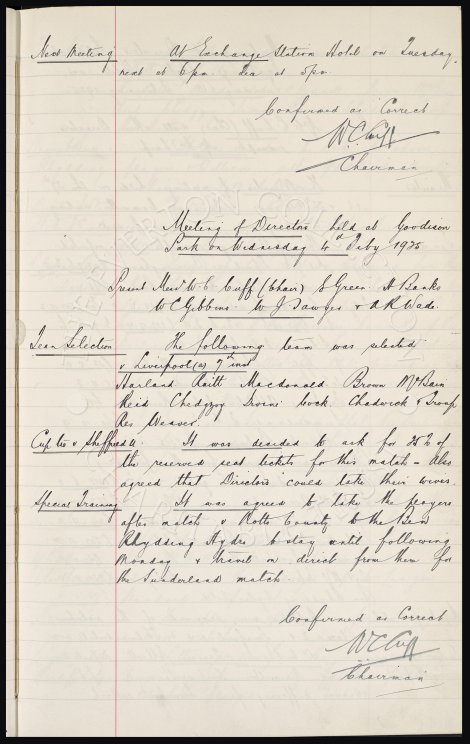 Next Meeting At Exchange Station Hotel on Tuesday
next at 6pm. Tea at 5pm.
Confirmed as Correct
W.C. Cuff
Chairman
Meeting of Directors held at Goodison
Park on Wednesday 4th Feby 1925
Present Messrs W.C. Cuff (Chair) E Green. A Banks
W C Gibbins. W J Sawyer & A R Wade.
Team Selection The following team was selected
v Liverpool (a) 7th inst
Harland Raitt Macdonald Brown McBain
Reid Chedgzoy Irvine Cock Chadwick & Troup
Res Weaver.
Cup tie v Sheffield U. It was decided to ask for 25% of
the reserved seat tickets for this match - also
agreed that Directors could take their wives.
Special Training It was agreed to take the players
after match v Notts County to the Ben
Rhydding Hydro to stay until following
Monday & travel on direct from there for
the Sunderland match.
Confirmed as Correct
W C Cuff
Chairman